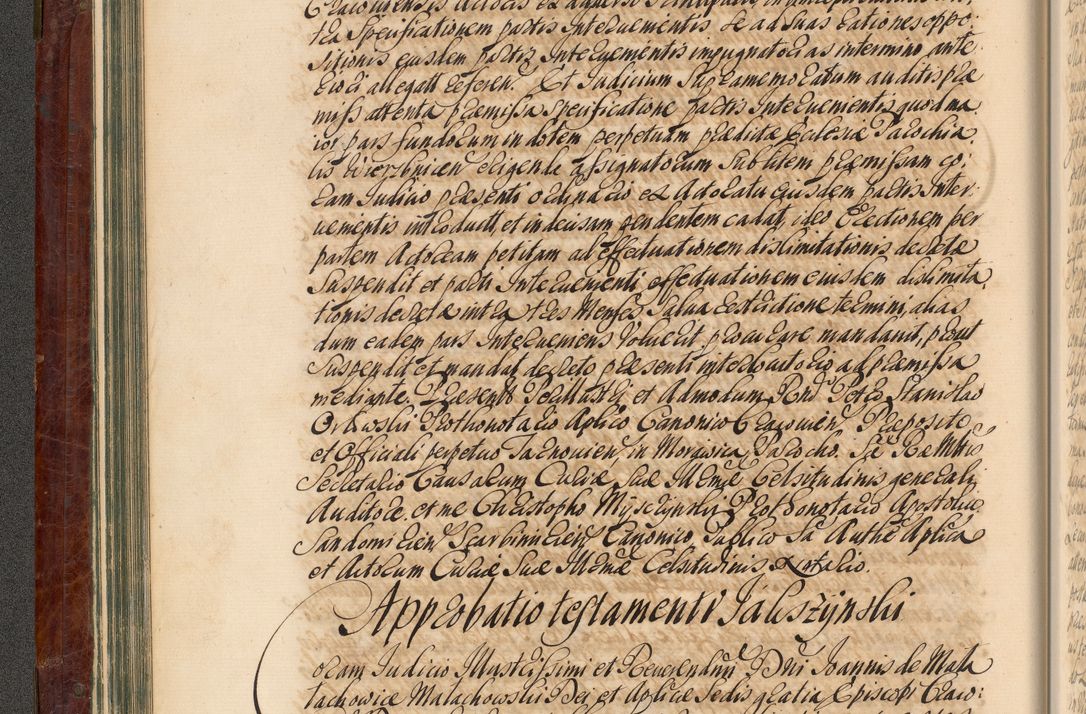 tra Specificationem partis Intervenientis et ad suas rationes oppo:
sitionis eiusdem partis Intervenientis impugnatorias in termino ante
riori allegatt referen. Et Judicium Supramemoratum auditis præ
miss attenta præmissa Specificatione partis Intervenientis quod ma
ior pars fundorum in dotem perpetuam prædictæ Ecclesiæ Parochia
lis Wierzbnicen erigendæ assignatorum sub litem præmissam co:
ram Judicio præsenti ordinario ex Actoratu eiusdem partis Inter:
venientis introductt, et indecisam pendentem cadat, ideo Erectionem per
partem Actoream petitam ad effectuationem dislimitationis decretæ
Suspendit et parti Intervenienti effectuationem eiusdem dislimita
tionis decretæ intra tres Menses salva restrictione termini, alias
dum eadem pars Interveniens voluerit procurare mandavit, prout
Suspendit et mandat decreto præsenti interlocutorio ad præmissa
mediante. Præsentt Perillustri et Admodum Rndo Petro Stanislao
Orłowski Prothonotario Aplico Canonico Cracovien Præposito
et Officiali perpetuo Tarnovien in Morawica Parocho. Sæ Ræ Mttis
Secretario Causarum Curiæ Suæ Illmæ Celsitudinis generali
Auditore. et me Christopho Myszczynski Prothonotario Apostolico
Sandomirien Scarbimirien Canonico, Publico Sa Authe Aplica
et Actorum Curiæ Suæ Illmæ Celsitudinis Notario.
Approbatio testamenti Jaliszÿnski
oram Judicio Illustrissimi et Reverendmi Dni Ioannis de Mała
łachowice Małachowski Dei et Aplicæ Sedis gratia Episcopi Craco: